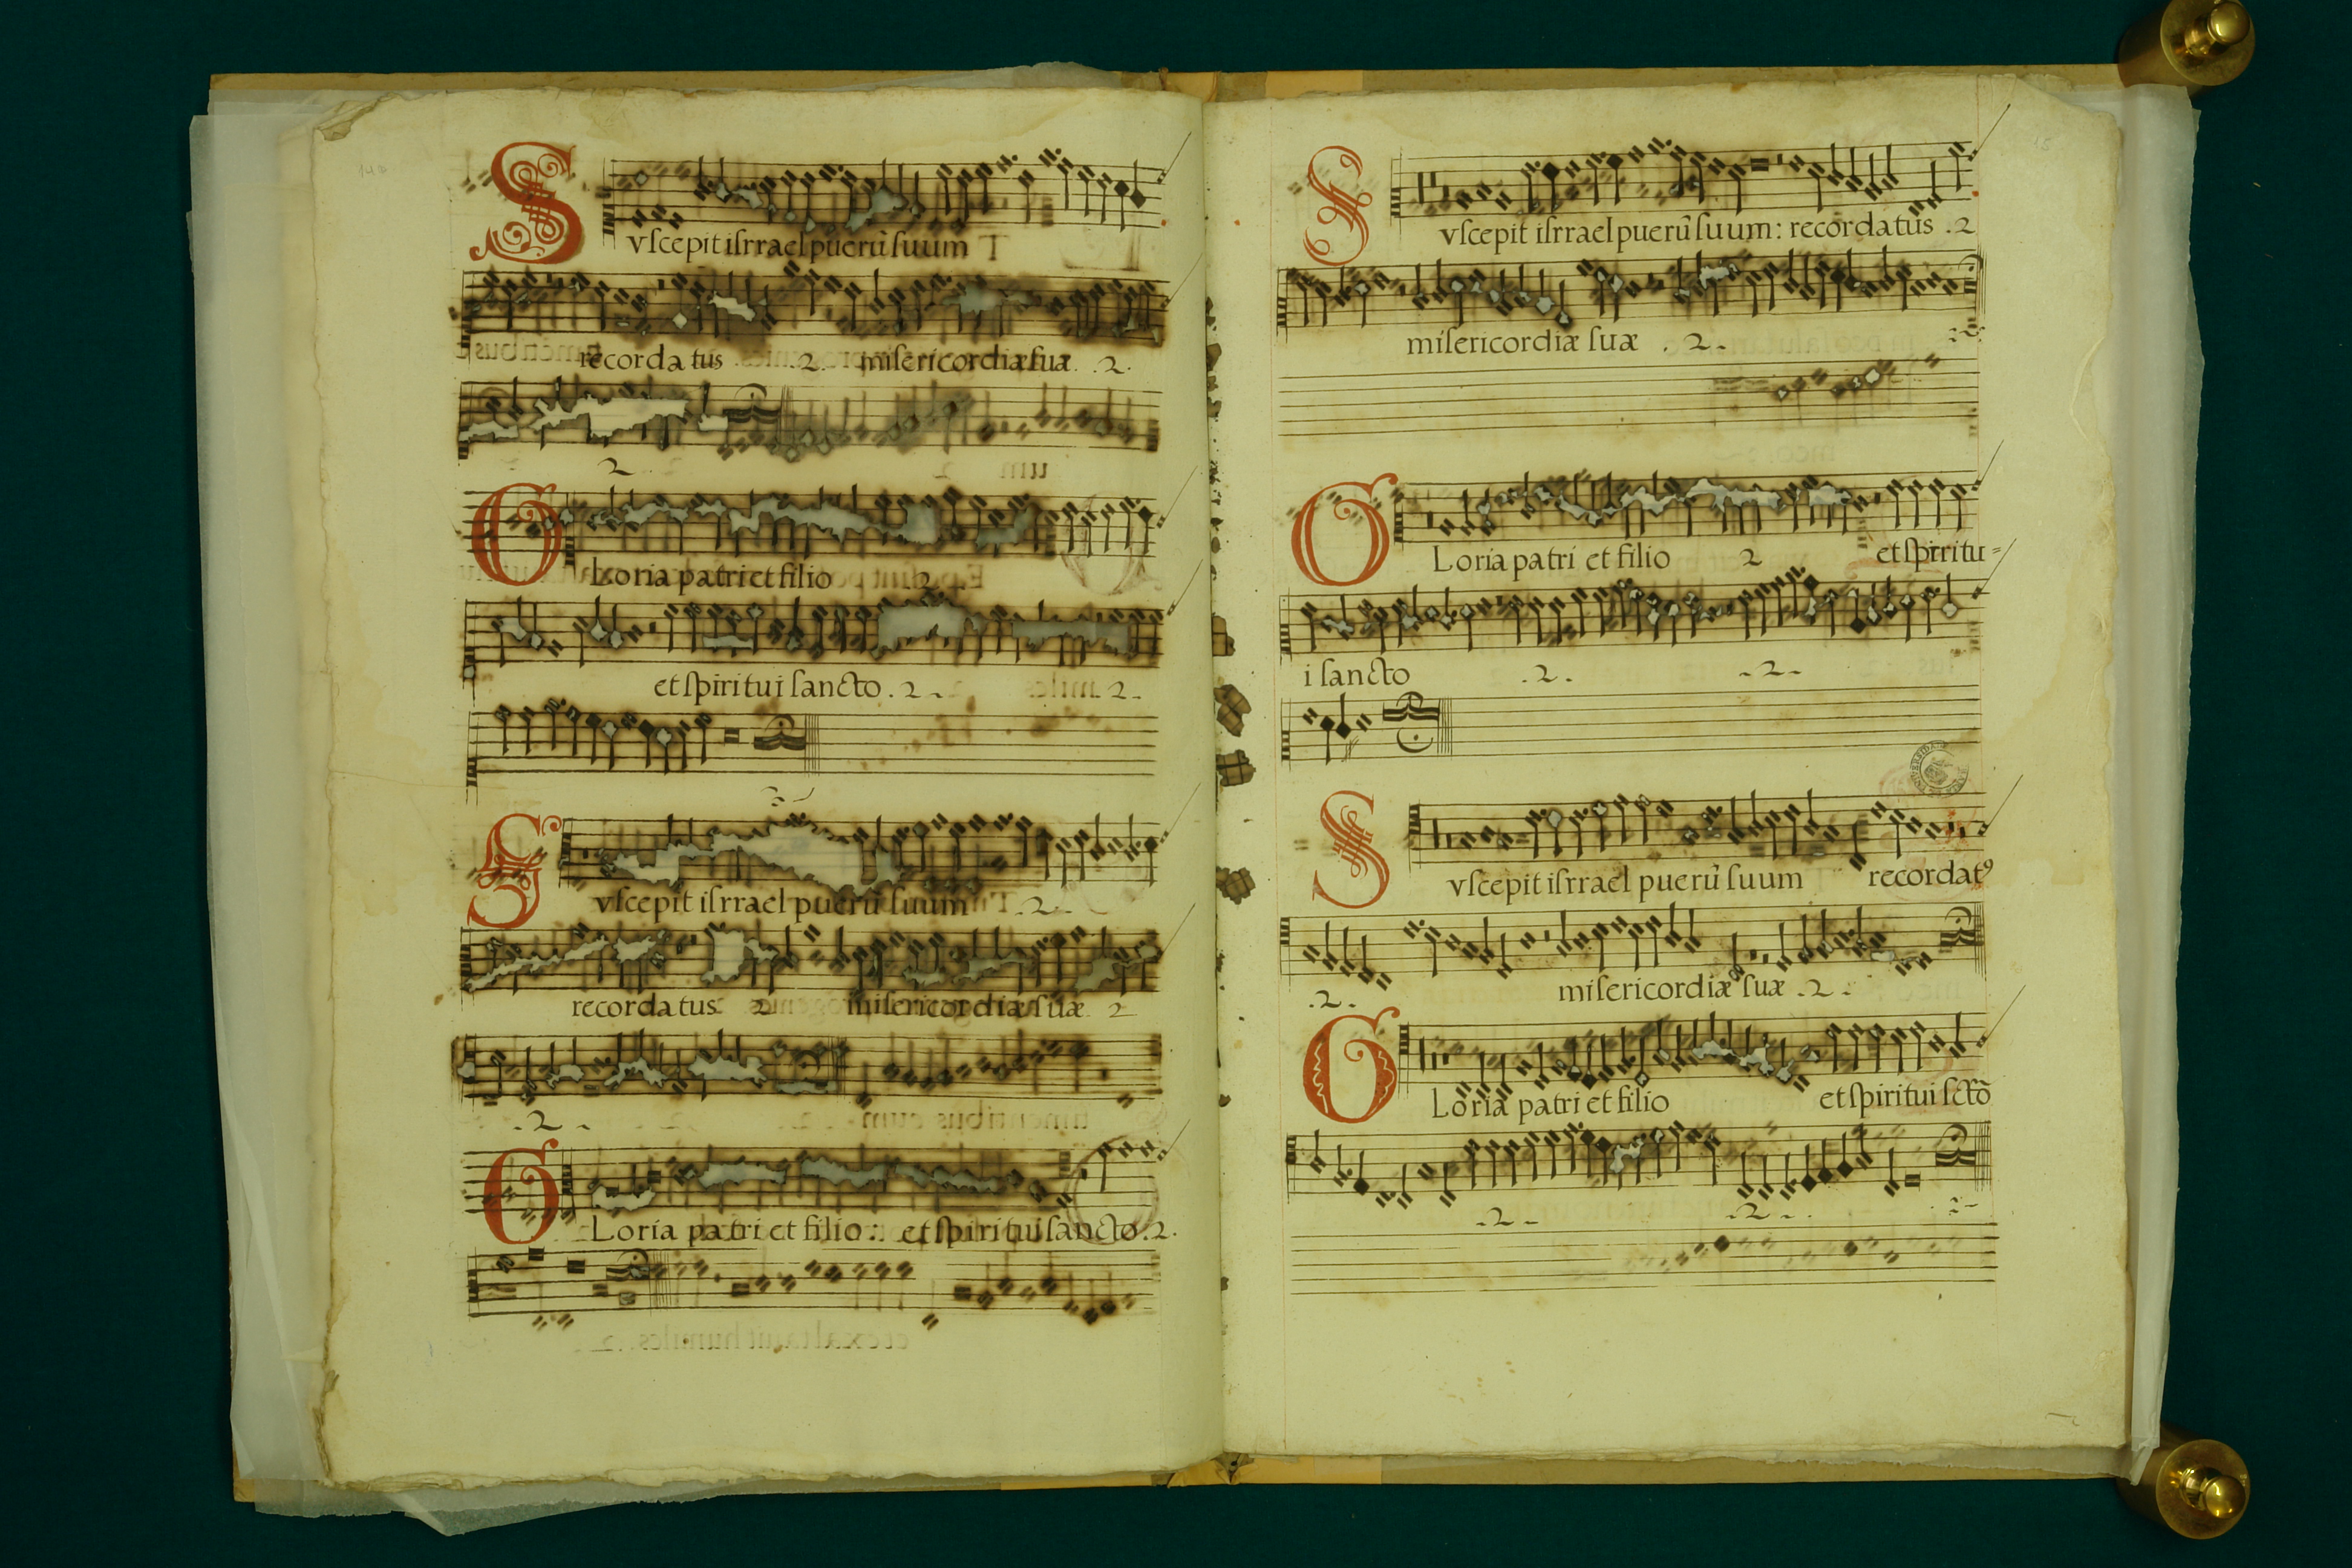 Suscepit isrrael puerũ suum
recordatus .2. misericordiæ suæ .2.
.2.
Gloria patri et filio .2.
et spiritui sancto .2. .2.
Suscepit isrrael puerũ suum .2.
recordatus 2 misericordiæ suæ 2
.2.
Gloria patri et filio: et spiritui sancto .2.
Suscepit isrrael puerũ suum: recordatus .2
misericordiæ suæ .2.
Gloria patri et filio 2 et spiritu=
i sancto .2. .2.
Suscepit isrrael puerũ suum recordatꝰ
.2. misericordiæ suæ .2.
Gloria patri et filio et spiritui sctõ
.2. .2.